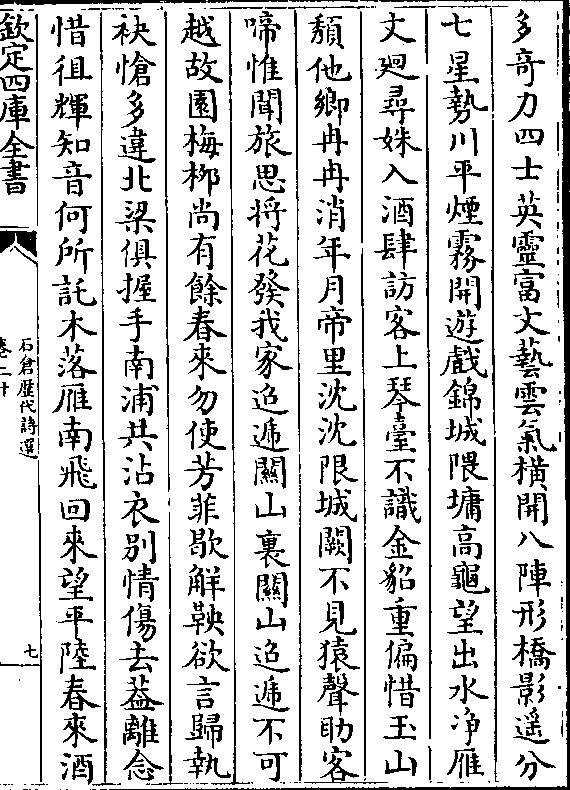 多奇力四士英靈富文藝雲氣橫開八陣形橋影遥分
七星勢川平煙霧開遊戲錦城隈墉高龜望出水净雁
文廻尋姝入酒肆訪客上琴臺不識金貂重偏惜玉山
頹他鄉冉冉消年月帝里沈沈限城闕不見猿聲助客
啼惟聞旅思将花發我家迢遞關山裏關山迢遞不可
越故園梅栁尚有餘春來勿使芳菲歇解鞅欲言歸執
袂愴多違北梁俱握手南浦共沾衣别情傷去葢離念
惜徂輝知音何所託木落雁南飛回來望平陸春來酒
欽定四庫全書
石倉歴代詩選
卷二十
七